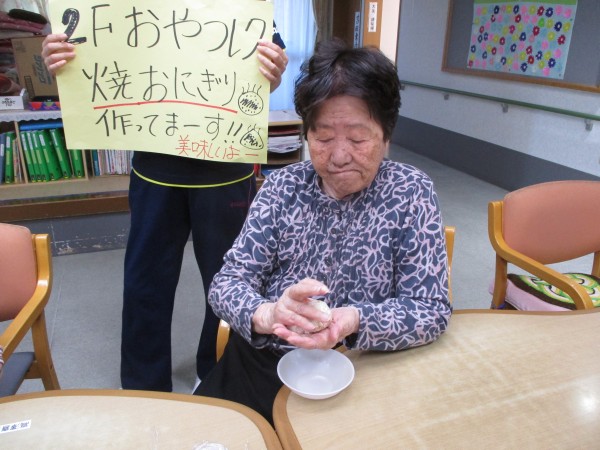 2F おやつレク
焼おにぎり
作ってまーす!!
美味しいよー